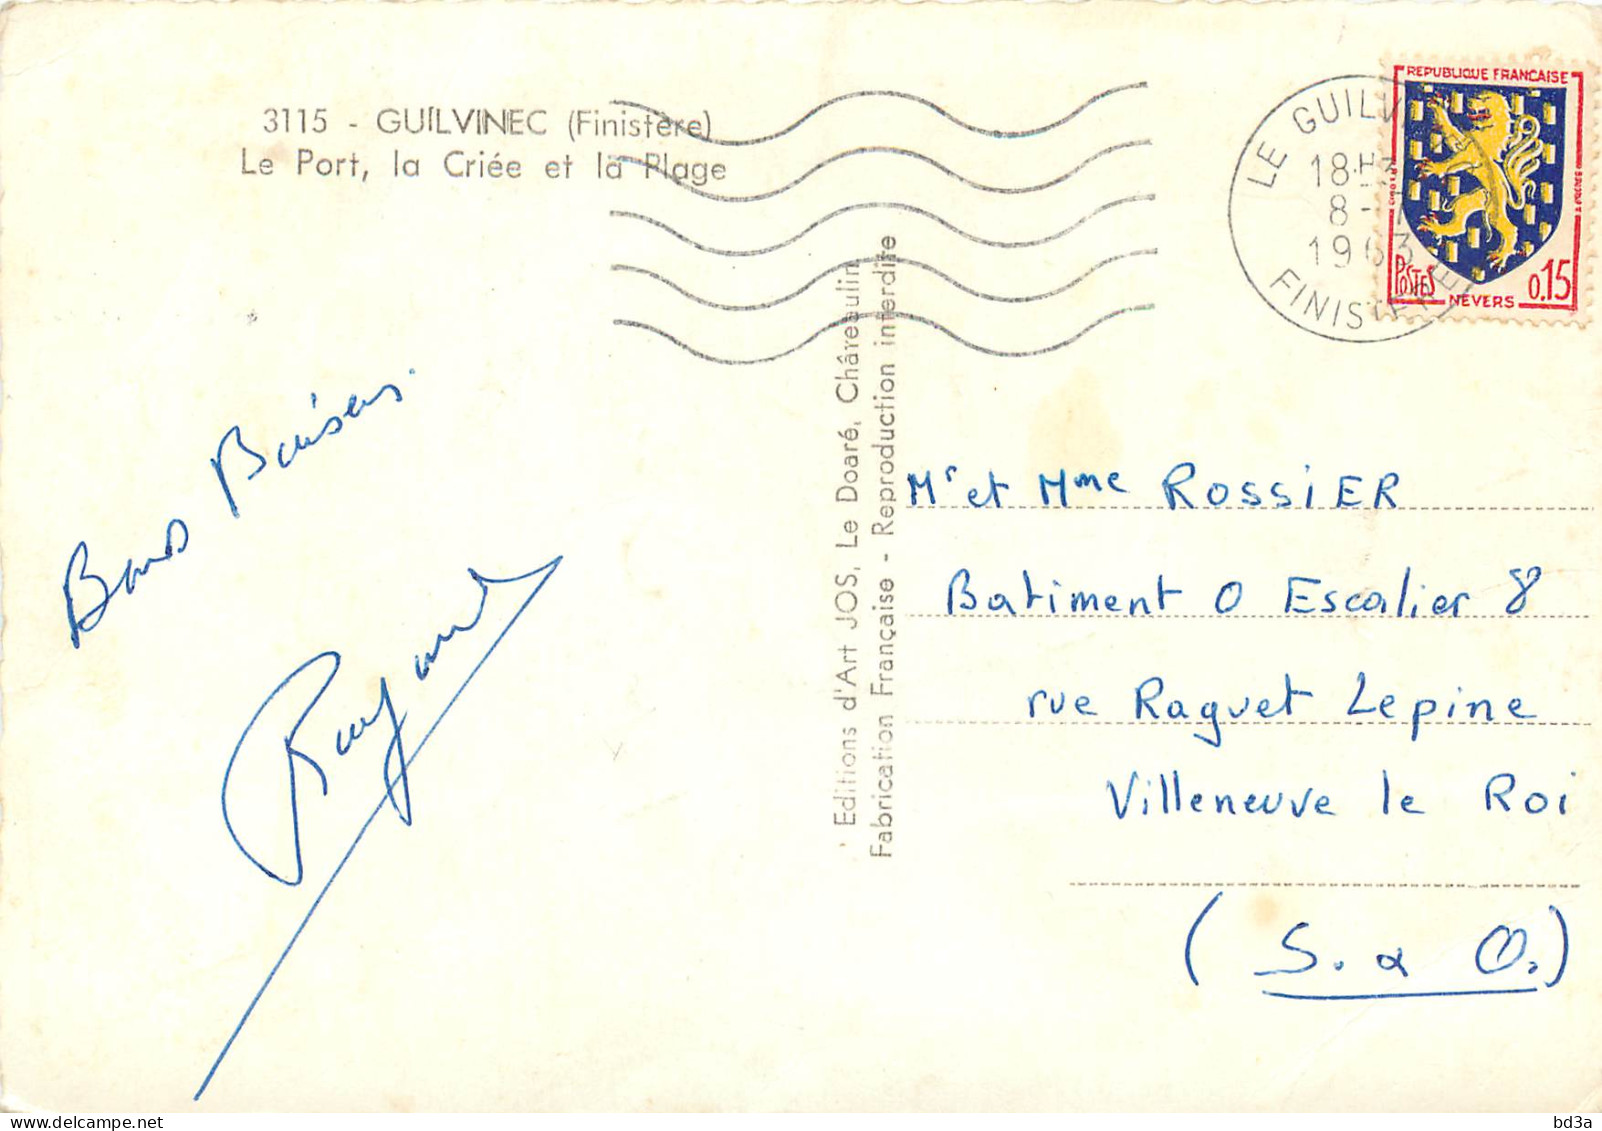 3115 - GUILVINEC (Finistère)
Le Port, la Criée et la Plage
LE GUILV
18H3
8-
1963
FINISTERE
REPUBLIQUE FRANCAISE
POSTES
NEVERS
0.15
Bons Baisers.
Raymond
Editions d'Art JOS, Le Doaré, Châteaulin
Fabrication Française - Reproduction interdite
Mr et Mme ROSSiER
Batiment O Escalier 8
rue Raguet Lepine
Villeneuve le Roi
(S. & O.)
delcampe.net
bd3a